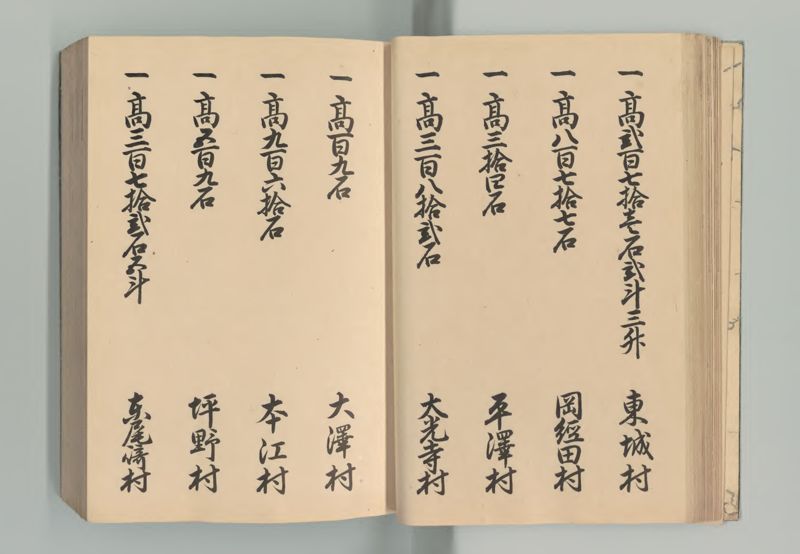 一 高弐百七拾壱石弐斗三升 東城村
一 高八百七拾七石 岡經田村
一 高三拾四石 平澤村
一 高三百八拾弐石 大光寺村
一 高百九石 大澤村
一 高九百六拾石 本江村
一 高五百九石 坪野村
一 高三百七拾弐石五斗 東尾崎村